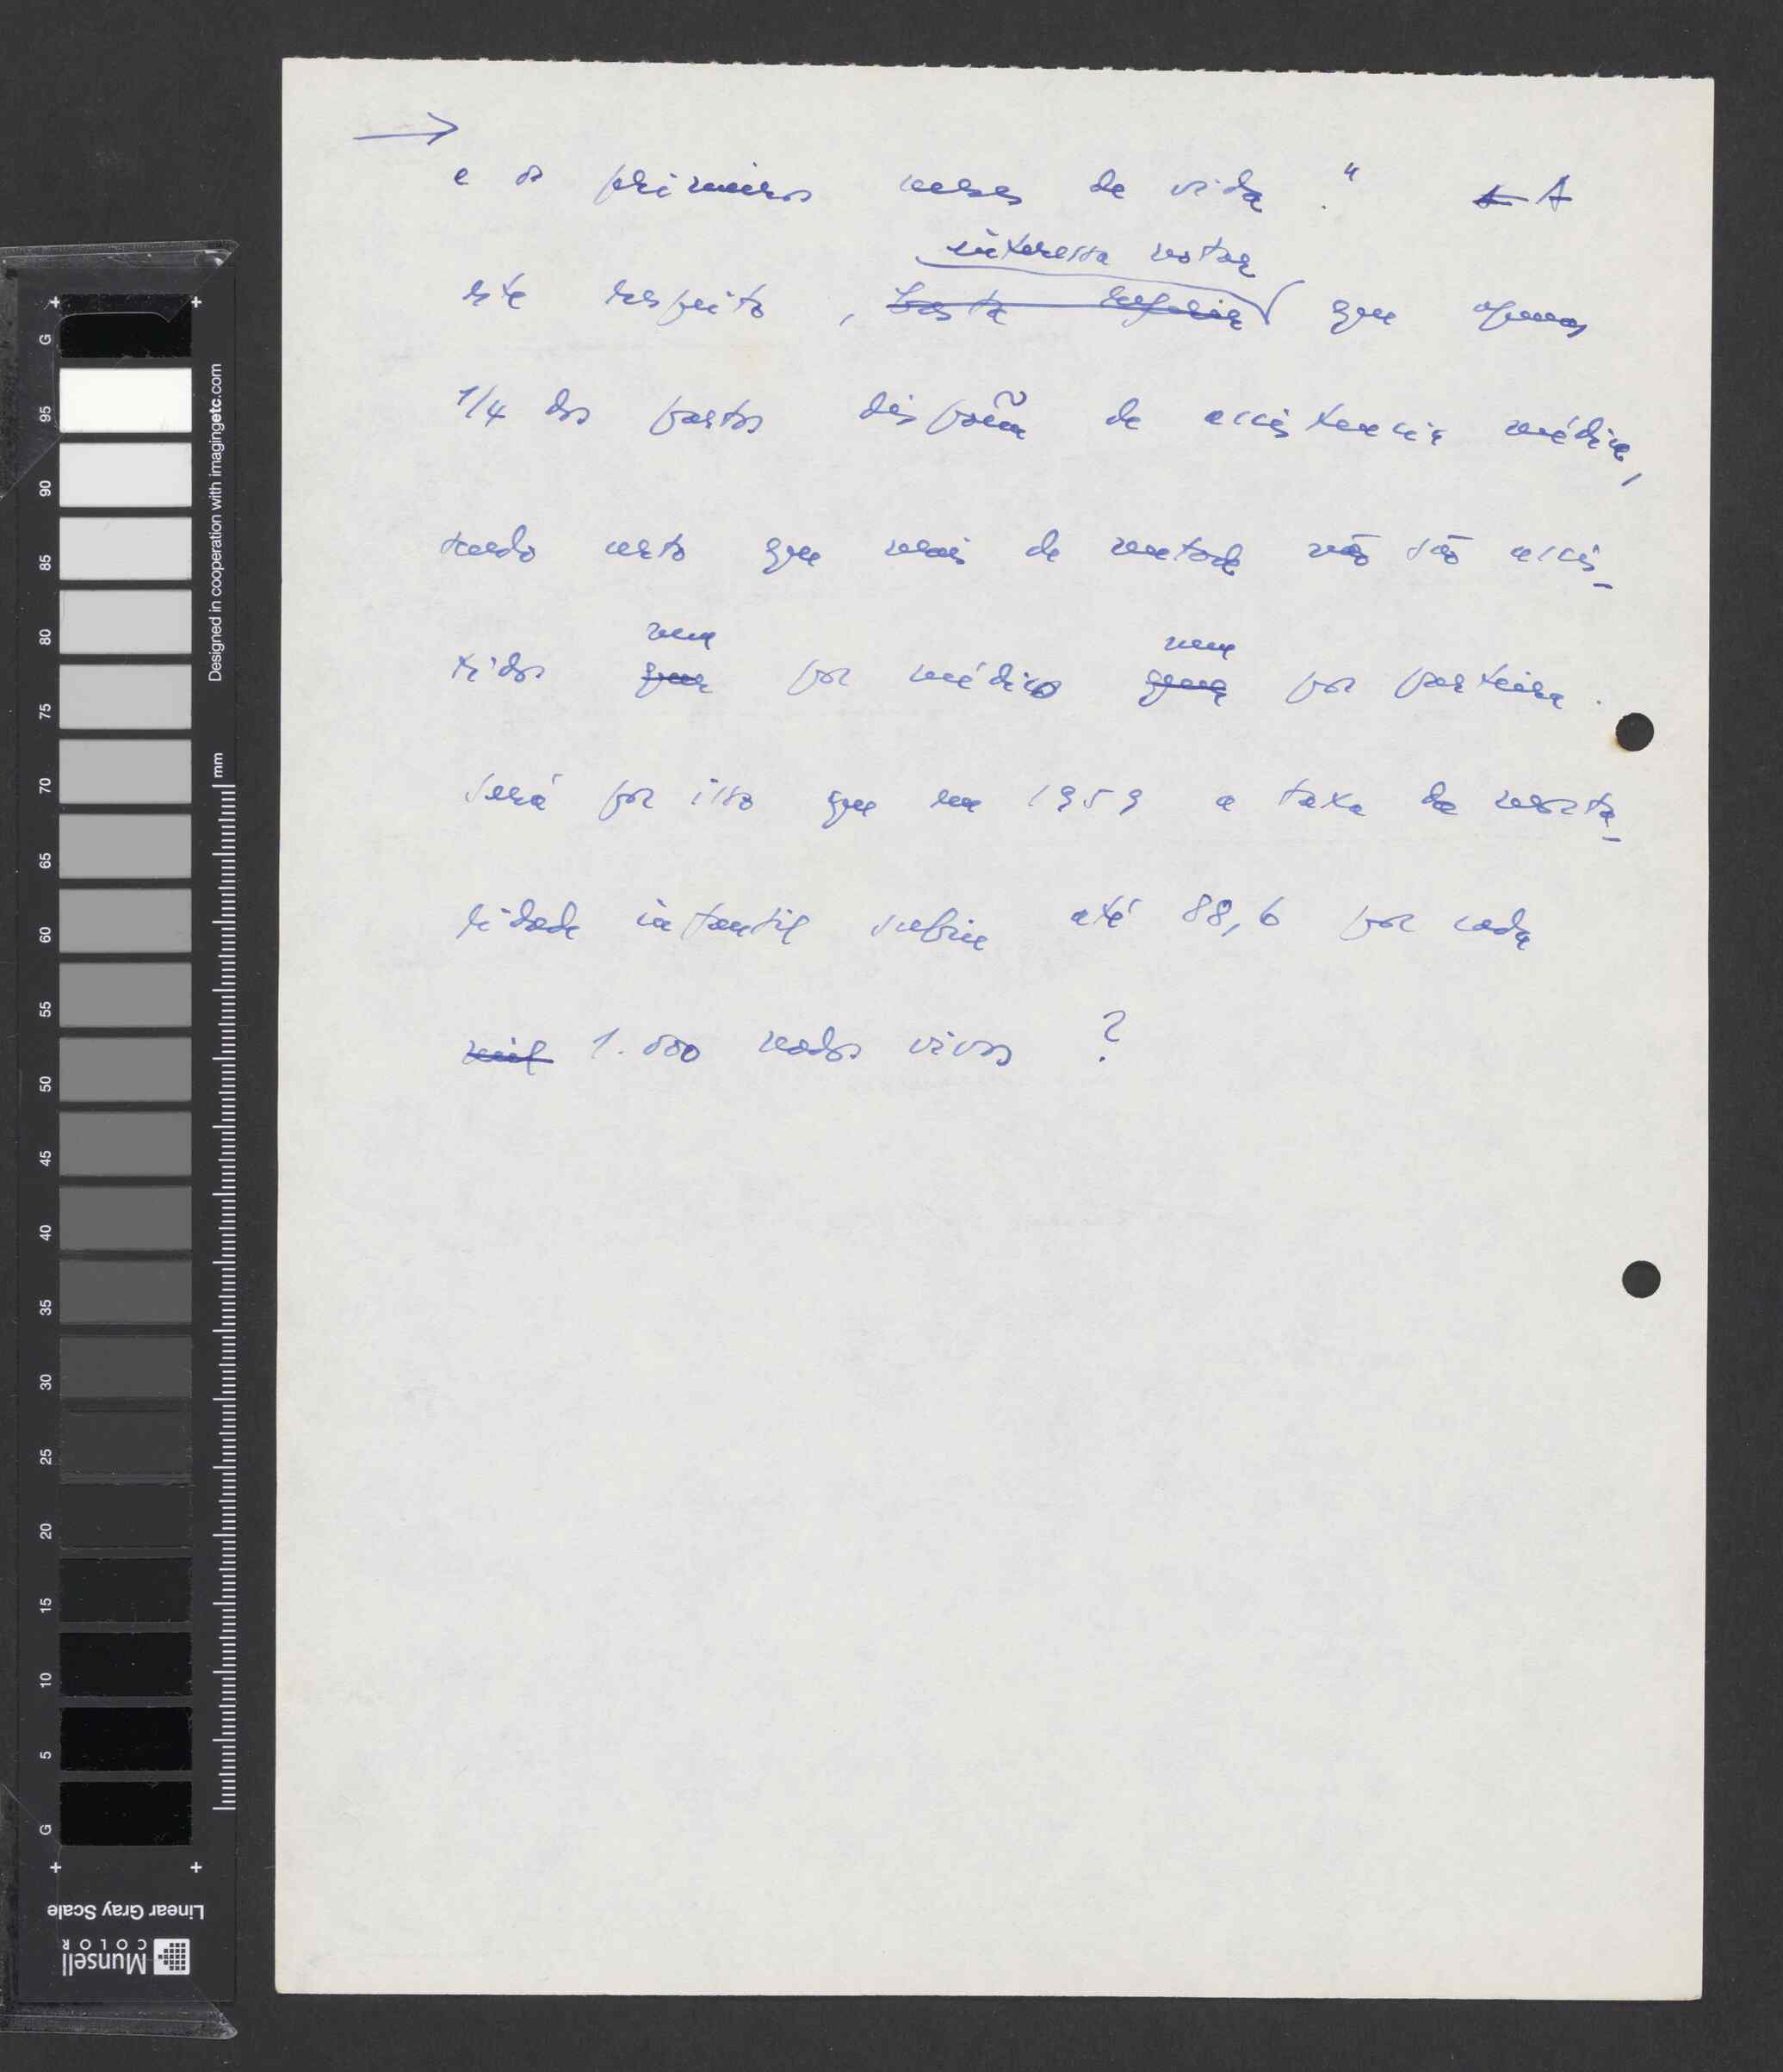 →
e os primeiros meses de vida." ~~A~~ A
interessa notar
este respeito, ~~basta referir~~ que apenas
1/4 dos partos dispõem de assistencia médica,
sendo certo que mais de metade não são assis-
nem nem
tidos ~~quer~~ por médico ~~quer~~ por parteira.
Será por isso que em 1959 a taxa de morta-
lidade infantil subiu até 88,6 por cada
~~mil~~ 1.000 nados vivos ?
G
95
90
85
80
75
70
65
60
55
50
45
40
35
30
25
20
15
10
5
G
Designed in cooperation with imagingetc.com
mm
Linear Gray Scale
Munsell
COLOR